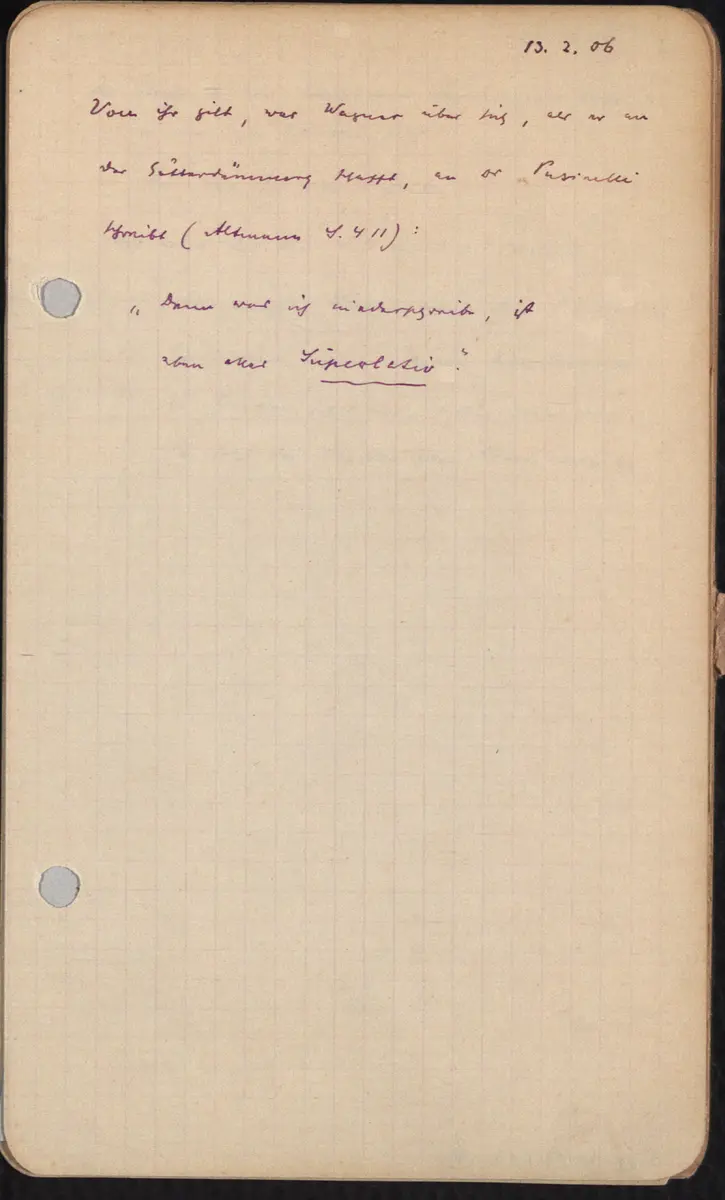 13. 2. 06
Von ihr gilt, was Wagner über sich, als er an
der Götterdämmerung schafft, an Dr Pusinelli
schreibt (Altmann S. 411):
„Denn was ich niederschreibe, ist
eben alles Superlativ."